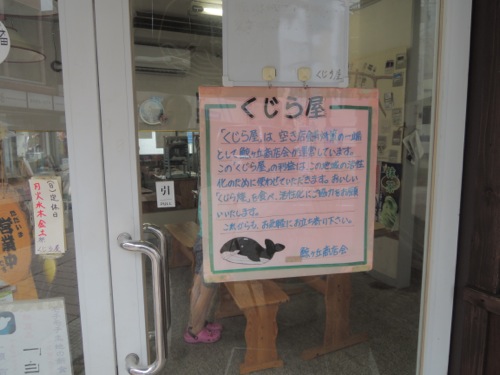 くじら屋
くじら屋
「くじら屋」は、空き店舗対策の一環
として鮫ヶ丘商店会が運営しています。
この「くじら屋」の利益は、この地域の活性
化のために使わせていただきます。おいしい
「くじら焼」を食べ、活性化にご協力をお願
いいたします。
これからも、お気軽にお立ち寄り下さい。
鮫ヶ丘商店会
引
定休日
営業中